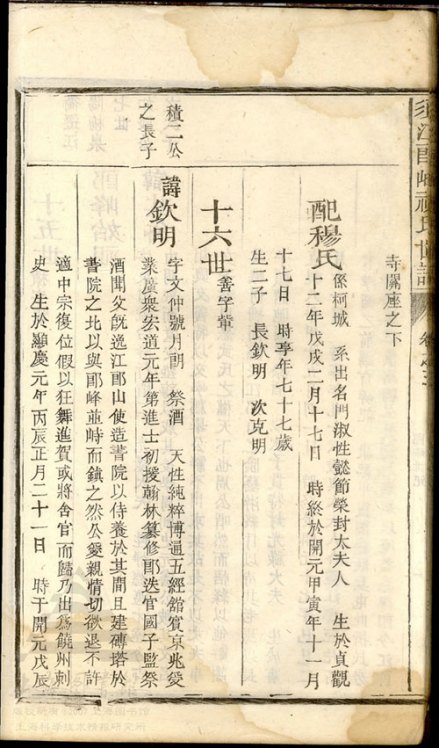 須江郎峰祝氏世譜 卷之三
寺關座之下
配穆氏
係柯城 系出名門淑性懿節榮封太夫人 生於貞觀
十二年戊戌二月十七日 時終於開元甲寅年十一月
十七日 時享年七十七歲
生二子 長欽明 次克明
十六世 善字輩
積二公
之長子
諱欽明
字文仲號月朗 祭酒 天性純粹博通五經館賓京兆燮
業廣衆宏道元年第進士初授翰林纂修郎迭官國子監祭
酒聞父旣逸江郎山使造書院以侍養於其間且建磚塔於
書院之北以與郎峰並峙而鎮之然公愛親情切欲退不許
適中宗復位假以狂舞進賀或將舍官而歸乃出爲饒州刺
史 生於顯慶元年丙辰正月二十一日 時于開元戊辰
上海科學技術情報研究所